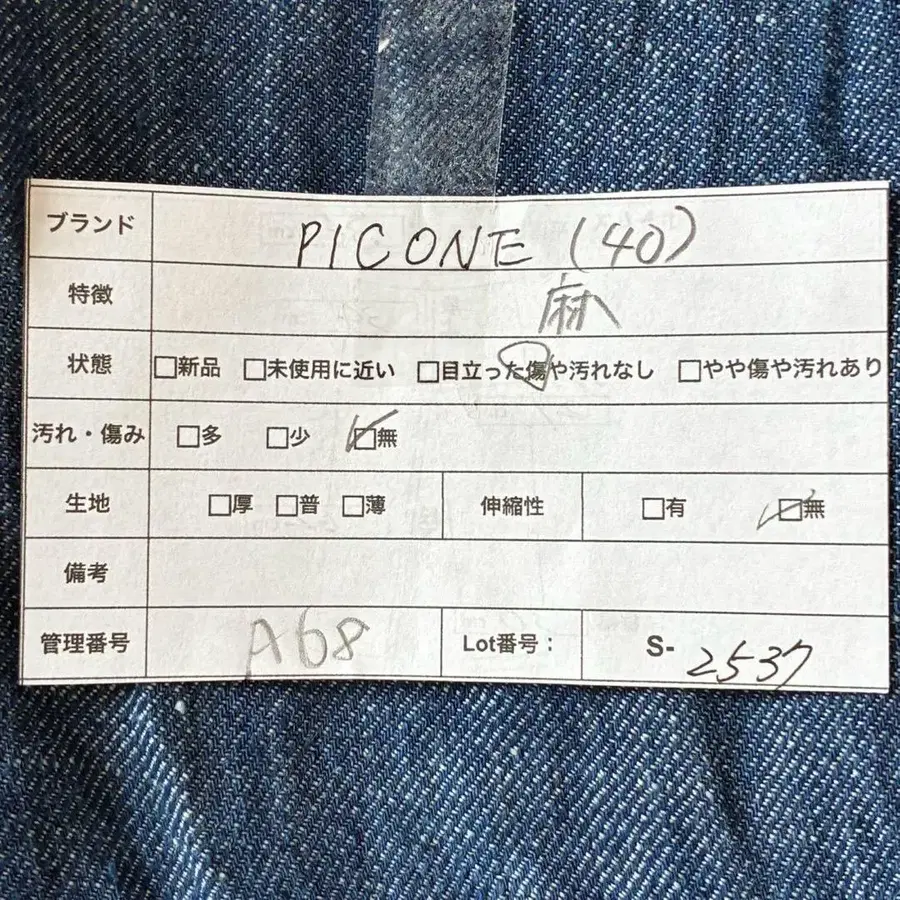 ブランド PICONE (40)
特徴 麻
状態 □新品 □未使用に近い □目立った傷や汚れなし □やや傷や汚れあり
汚れ・傷み □多 □少 ☑無
生地 □厚 □普 □薄 伸縮性 □有 ☑無
備考
管理番号 A68 Lot番号： S-2537